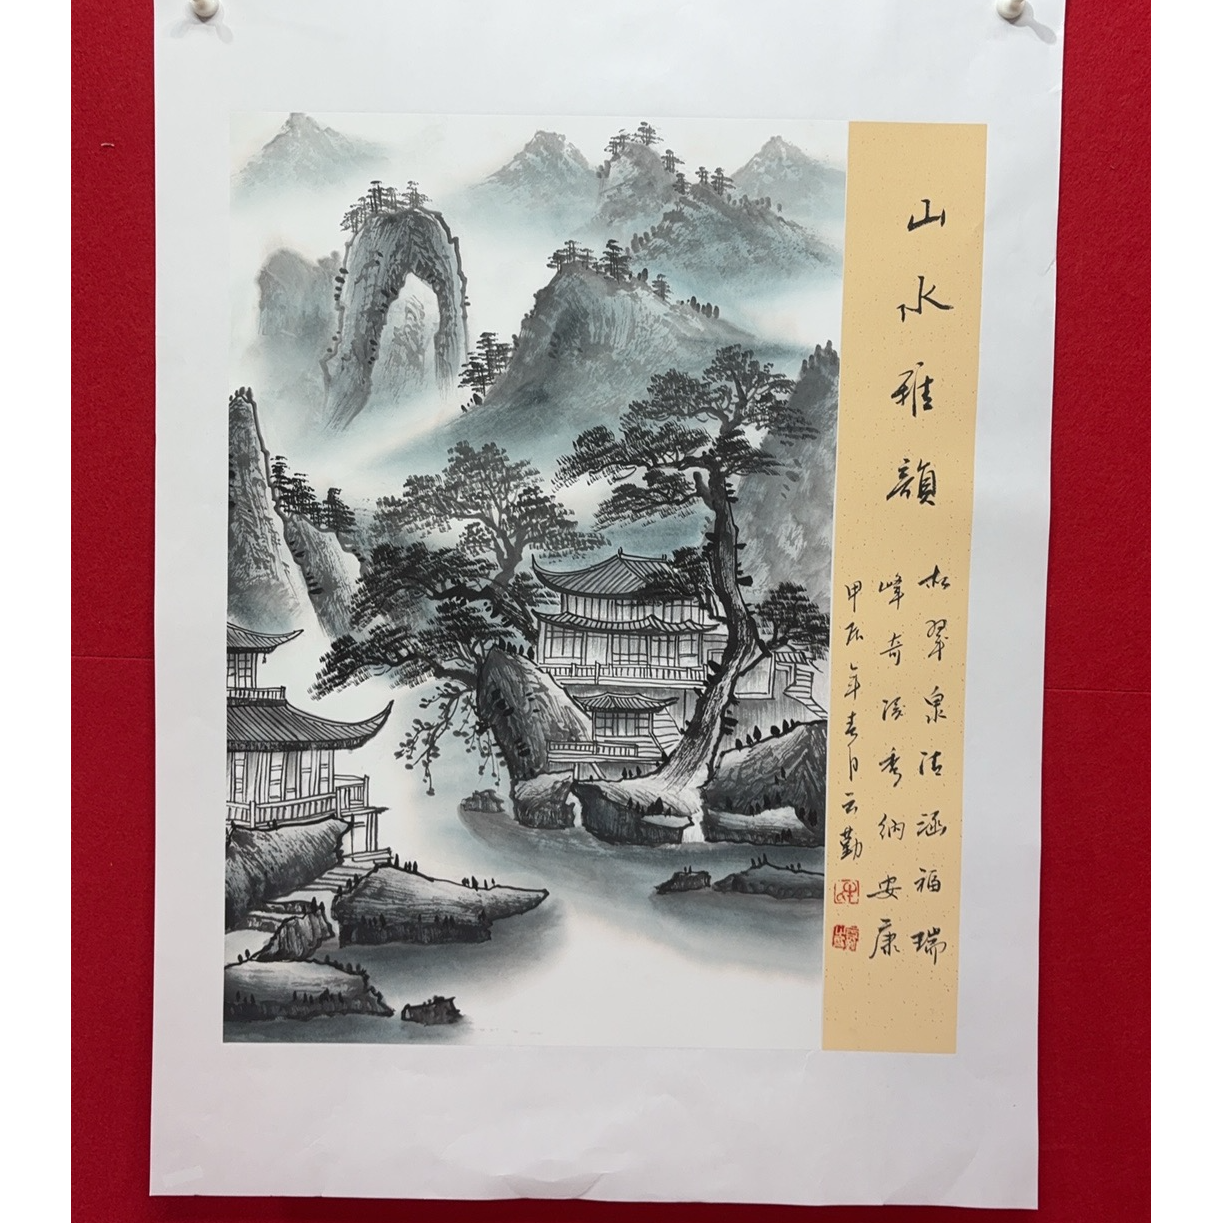 山水雅韻
松翠泉清涵福瑞
峰奇秀纳安康
甲辰年春月云勤